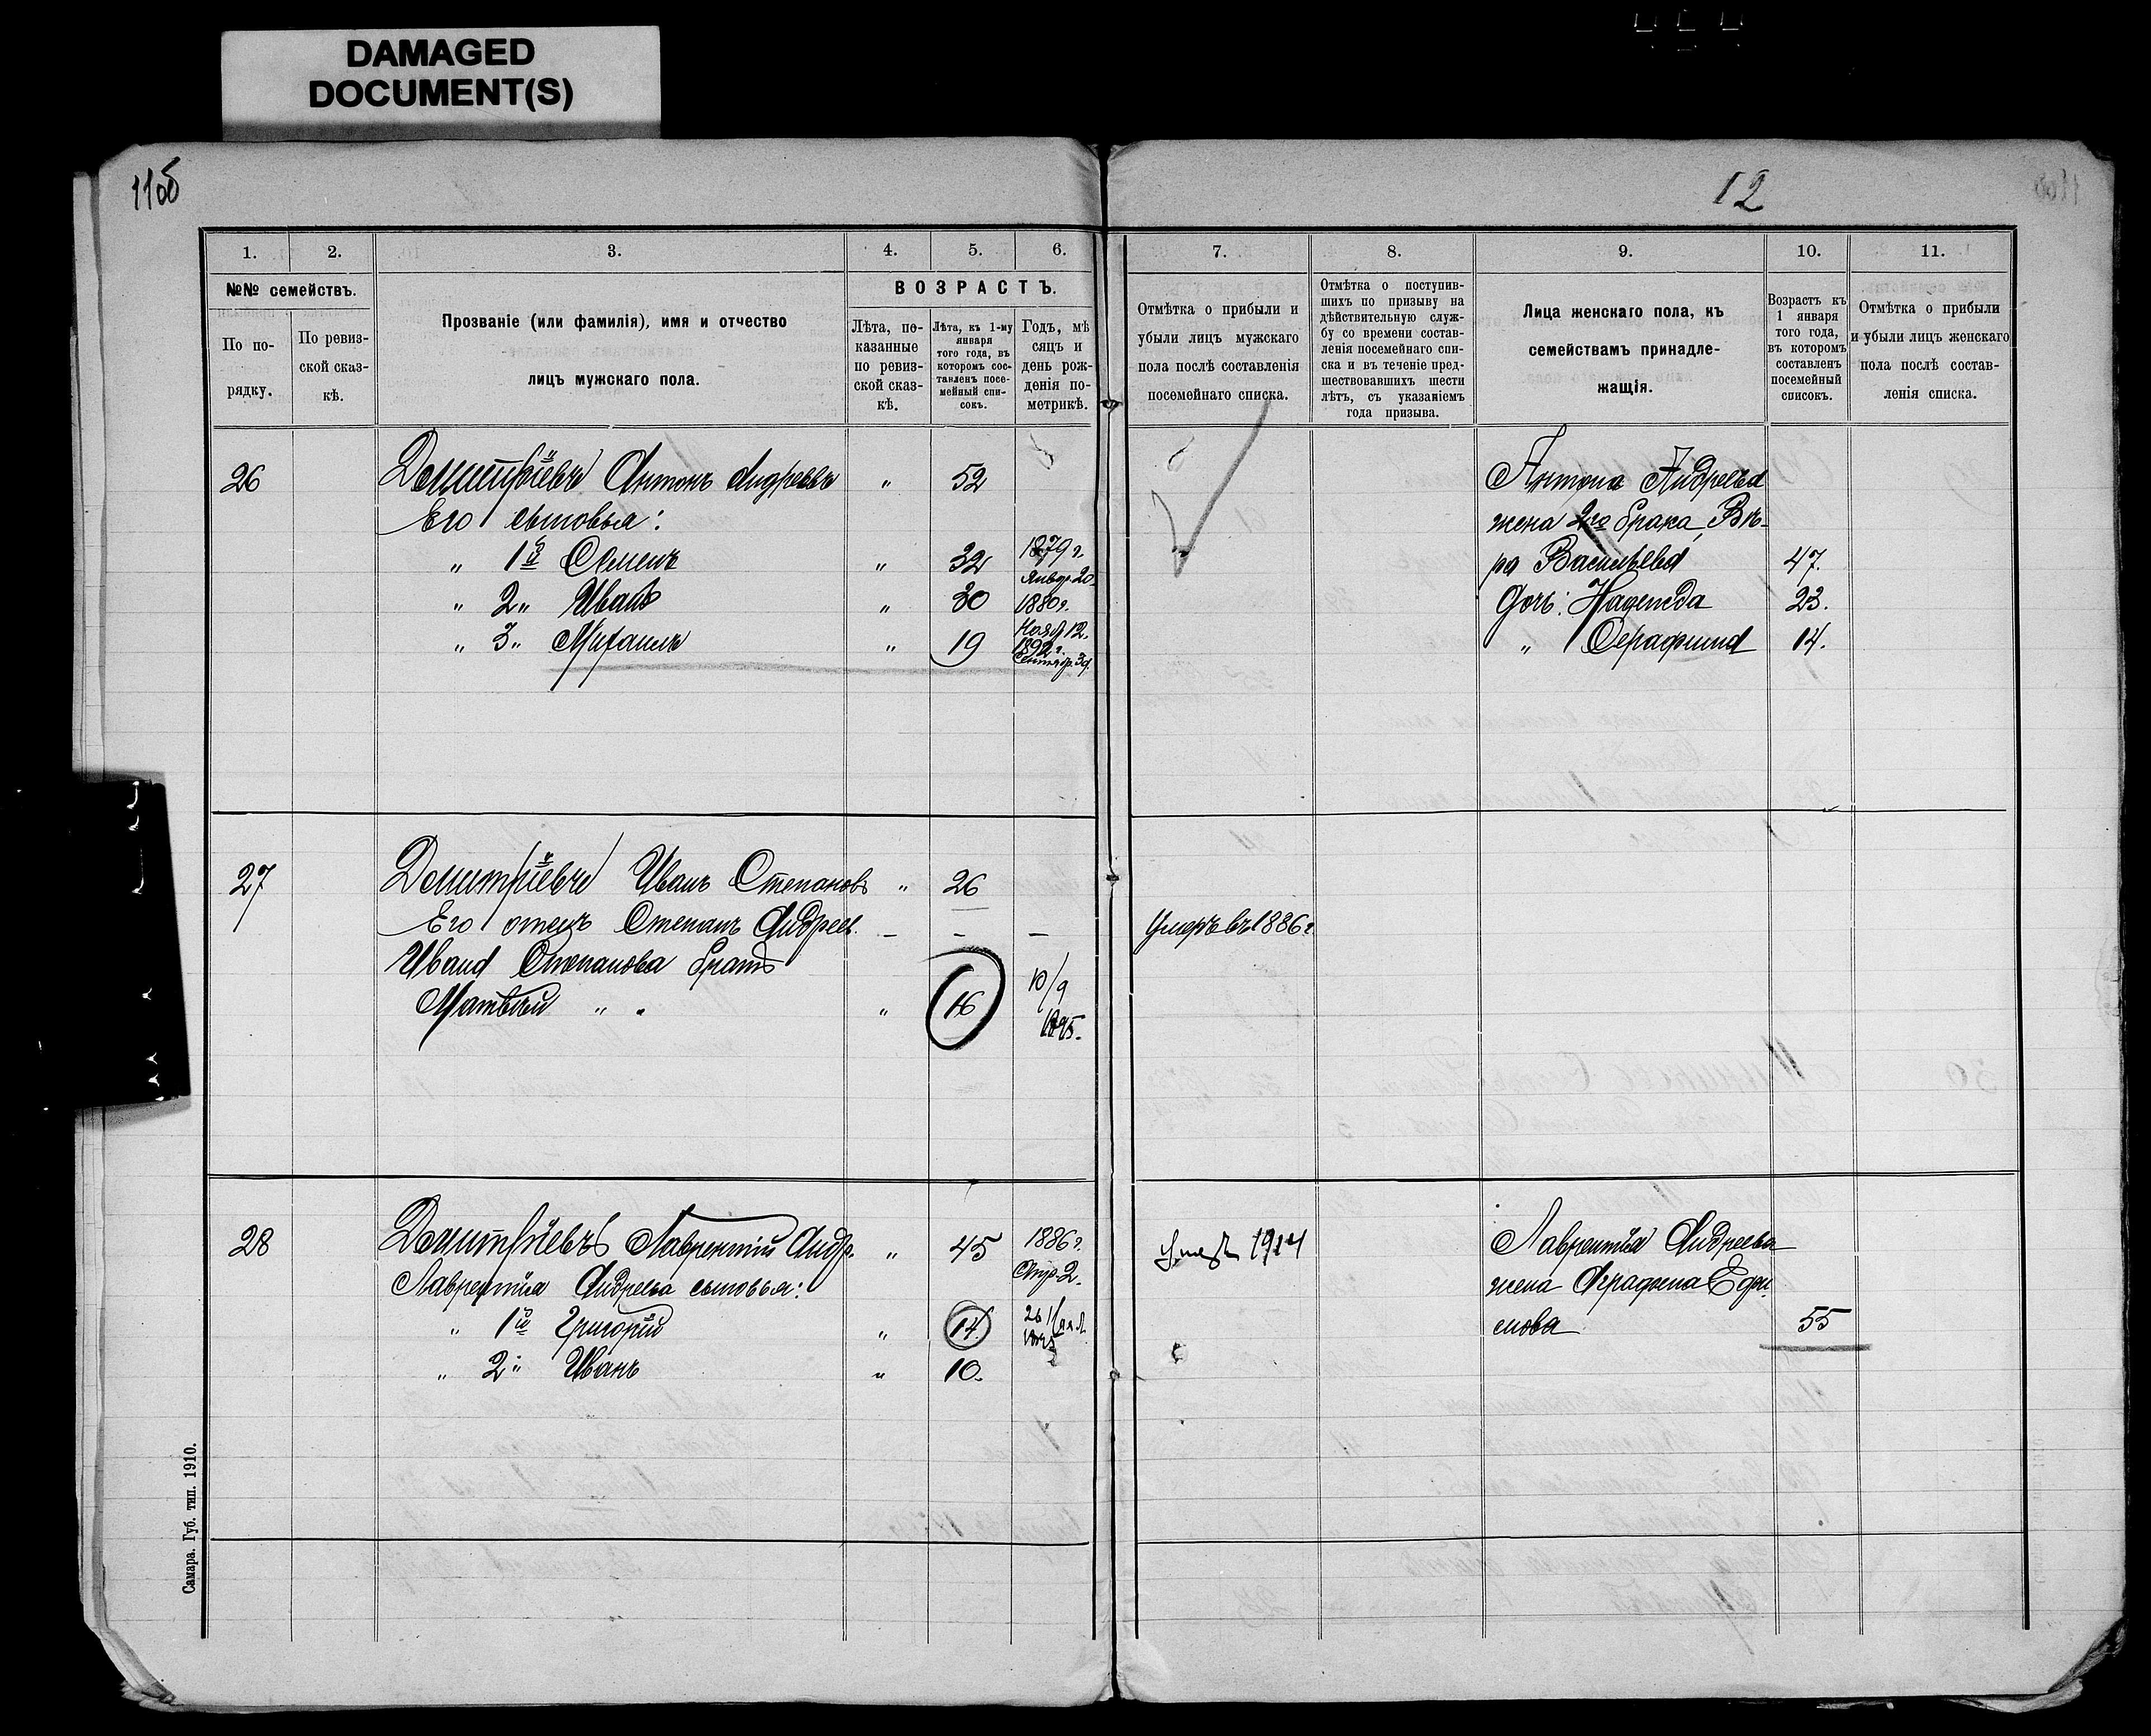 DAMAGED
DOCUMENT(S)
11об
12
1.
2.
3.
4.
5.
6.
7.
8.
9.
10.
11.
№№ семействъ.
По по-
рядку.
По ревиз-
ской сказ-
кѣ.
Прозваніе (или фамилія), имя и отчество
лицъ мужскаго пола.
ВОЗРАСТЪ.
Лѣта, по-
казанные
по ревиз-
ской сказ-
кѣ.
Лѣта, къ 1-му
января
того года, въ
которомъ сос-
тавленъ посе-
мейный спи-
сокъ.
Годъ, мѣ
сяцъ и
день рож-
денія по-
метрикѣ.
Отмѣтка о прибыли и
убыли лицъ мужскаго
пола послѣ составленія
посемейнаго списка.
Отмѣтка о поступив-
шихъ по призыву на
дѣйствительную служ-
бу со времени состав-
ленія посемейнаго спи-
ска и въ теченіе пред-
шествовавшихъ шести
лѣтъ, съ указаніемъ
года призыва.
Лица женскаго пола, къ
семействамъ принадле-
жащія.
Возрастъ къ
1 января
того года,
въ которомъ
составленъ
посемейный
списокъ.
Отмѣтка о прибыли
и убыли лицъ женскаго
пола послѣ состав-
ленія списка.
26 Дмитріевъ Антонъ Андреевъ " 52
Его сыновья:
" 1й Семенъ " 32 1879 г. Январ. 20.
" 2" Иванъ " 30 1880 г. Нояб. 12.
" 3" Михаилъ " 19 1892 г. Сентяб. 30.
Антона Андреева
жена 2го брака, Вѣ-
ра Васильева 47.
Дочь: Надежда 23.
" Серафима 14.
27 Дмитріевъ Иванъ Степановъ " 26
Его отецъ Степанъ Андреев. - - - Умеръ въ 1886 г.
Ивана Степанова братъ
Матвѣй " " " 16 10/9 1895.
28 Дмитріевъ Лаврентій Андр. " 45 1886 г. Апр. 2. 1914
Лаврентія Андреева сыновья:
" 1й Григорій " 14
" 2" Иванъ " 10.
Лаврентія Андреева
жена Аграфена Ефи-
мова 55
Самара. Губ. тип. 1910.